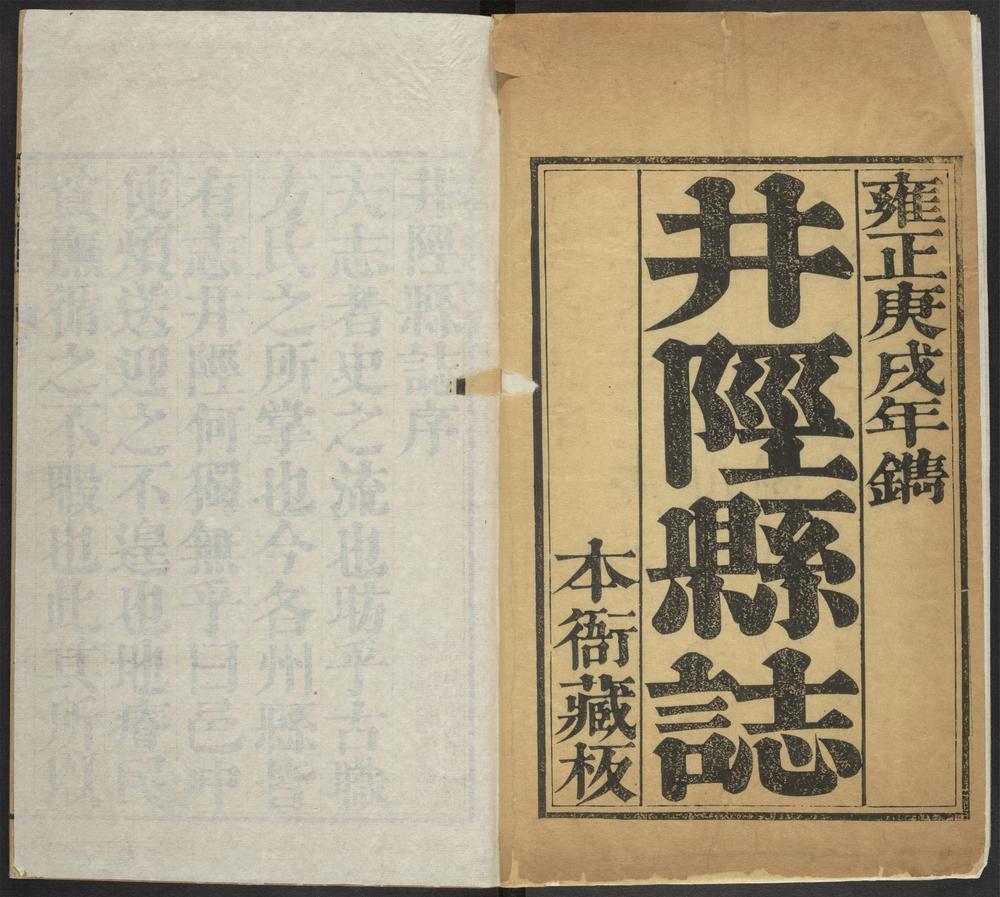 雍正庚戌年鐫
井陘縣誌
本衙藏板
井陘縣誌序
夫志者史之流也昉乎古職
方氏之所掌也今各州縣皆
有志井陘何獨無乎曰邑冲
使煩送迎之不遑也地瘠民
貧撫循之不暇也此其所以